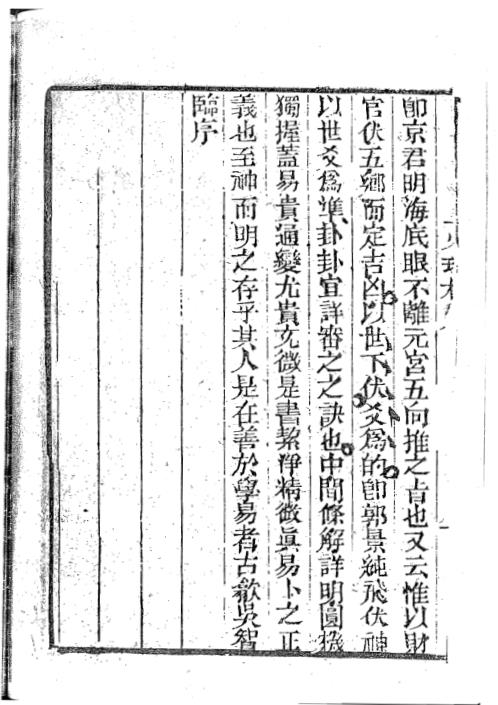 卽京君明海底眼不離元宮五向推之㫖也又云惟以財
官伏五鄕而定吉凶以世下伏爻爲的卽郭景純飛伏神
以世爻爲準卦卦宜詳審之之訣也中間條解詳明圓機
獨握蓋易貴通變尤貴充微是書絜淨精微眞易卜之正
義也至神而明之存乎其人是在善於學易者古歙吳智
臨序